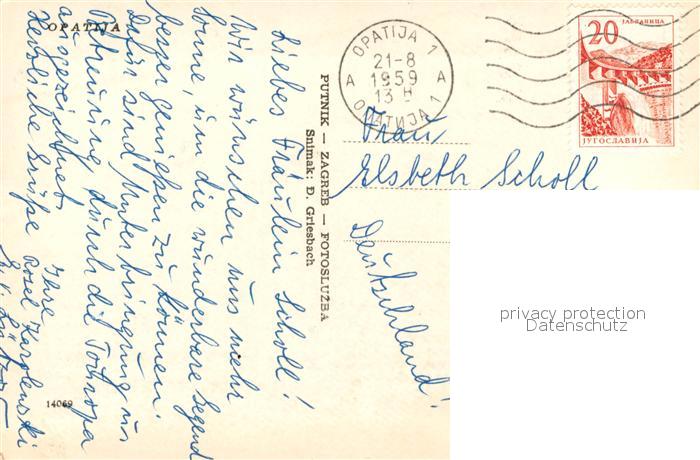 OPATIJA
Liebes Fräulein Scholl!
Wir wünschen uns mehr
Sonne, um die wunderbare Gegend
besser genießen zu können.
Dafür sind Unterbringung u.
Betreuung durch die Touropa
ausgezeichnet.
Herzliche Grüße
Ihre
Rosel
14069
PUTNIK — ZAGREB — FOTOSLUŽBA
Snimak: Đ. Griesbach
OPATIJA 1
21-8
1959
13 H
A A
ОПАТИЈА 1
ЈАБЛАНИЦА
20
ЈУГОСЛАВИЈА
Frau
Elsbeth Scholl
Deutschland!
privacy protection
Datenschutz